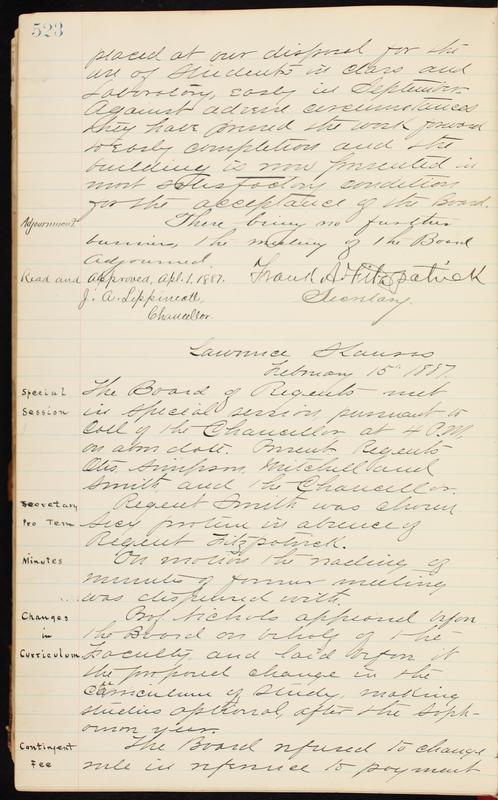 523
placed at our disposal for the
use of students in class and
Laboratory, early in September.
Against adverse circumstances
they have pressed the work forward
to early completion and the
building is now presented in
most satisfactory condition
for the acceptance of the Board.
Adjournment. There being no further
business, the meeting of the Board
adjourned.
Read and approved, Apl. 1. 1887. Frank A. Fitzpatrick
J. A. Lippincott, Secretary.
Chancellor.
Lawrence Kansas
February 15th 1887
Special The Board of Regents met
Session in special session pursuant to
Call of the Chancellor at 4 P.M.
on above date. Present Regents
Otis, Simpson, Mitchell and
Smith and the Chancellor.
Secretary Regent Smith was chosen
Pro Tem Secy protem in absence of
Regent Fitzpatrick.
Minutes On motion the reading of
minutes of former meeting
was dispensed with.
Changes Prof Nichols appeared before
in the Board on behalf of the
Curriculum Faculty and laid before it
the proposed change in the
curriculum of study, making
studies optional, after the Soph-
omore year.
Contingent The Board refused to change
Fee rule in reference to payment